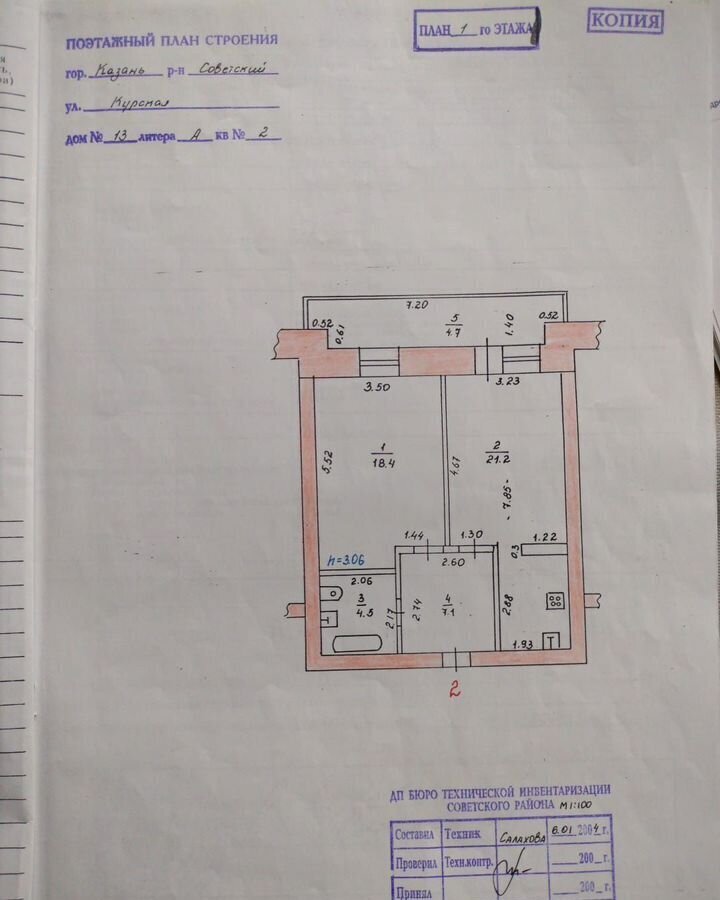 ПЛАН 1 го ЭТАЖА
КОПИЯ
ПОЭТАЖНЫЙ ПЛАН СТРОЕНИЯ
гор. Казань р-н Советский
ул. Курская
дом № 13 литера А кв № 2
7.20
0.52
0.61
5
4.7
1.40
0.52
3.50
3.23
5.52
1
18.4
4.67
2
21.2
-7.85-
1.44
1.30
1.22
0.3
h=3.06
2.60
2.06
3
4.5
2.17
2.74
4
7.1
2.88
1.93
2
ДП БЮРО ТЕХНИЧЕСКОЙ ИНВЕНТАРИЗАЦИИ
СОВЕТСКОГО РАЙОНА М 1:100
Составил Техник Салахова 6.01 2004 г.
Проверил Техн.контр. 200 г.
Принял 200 г.